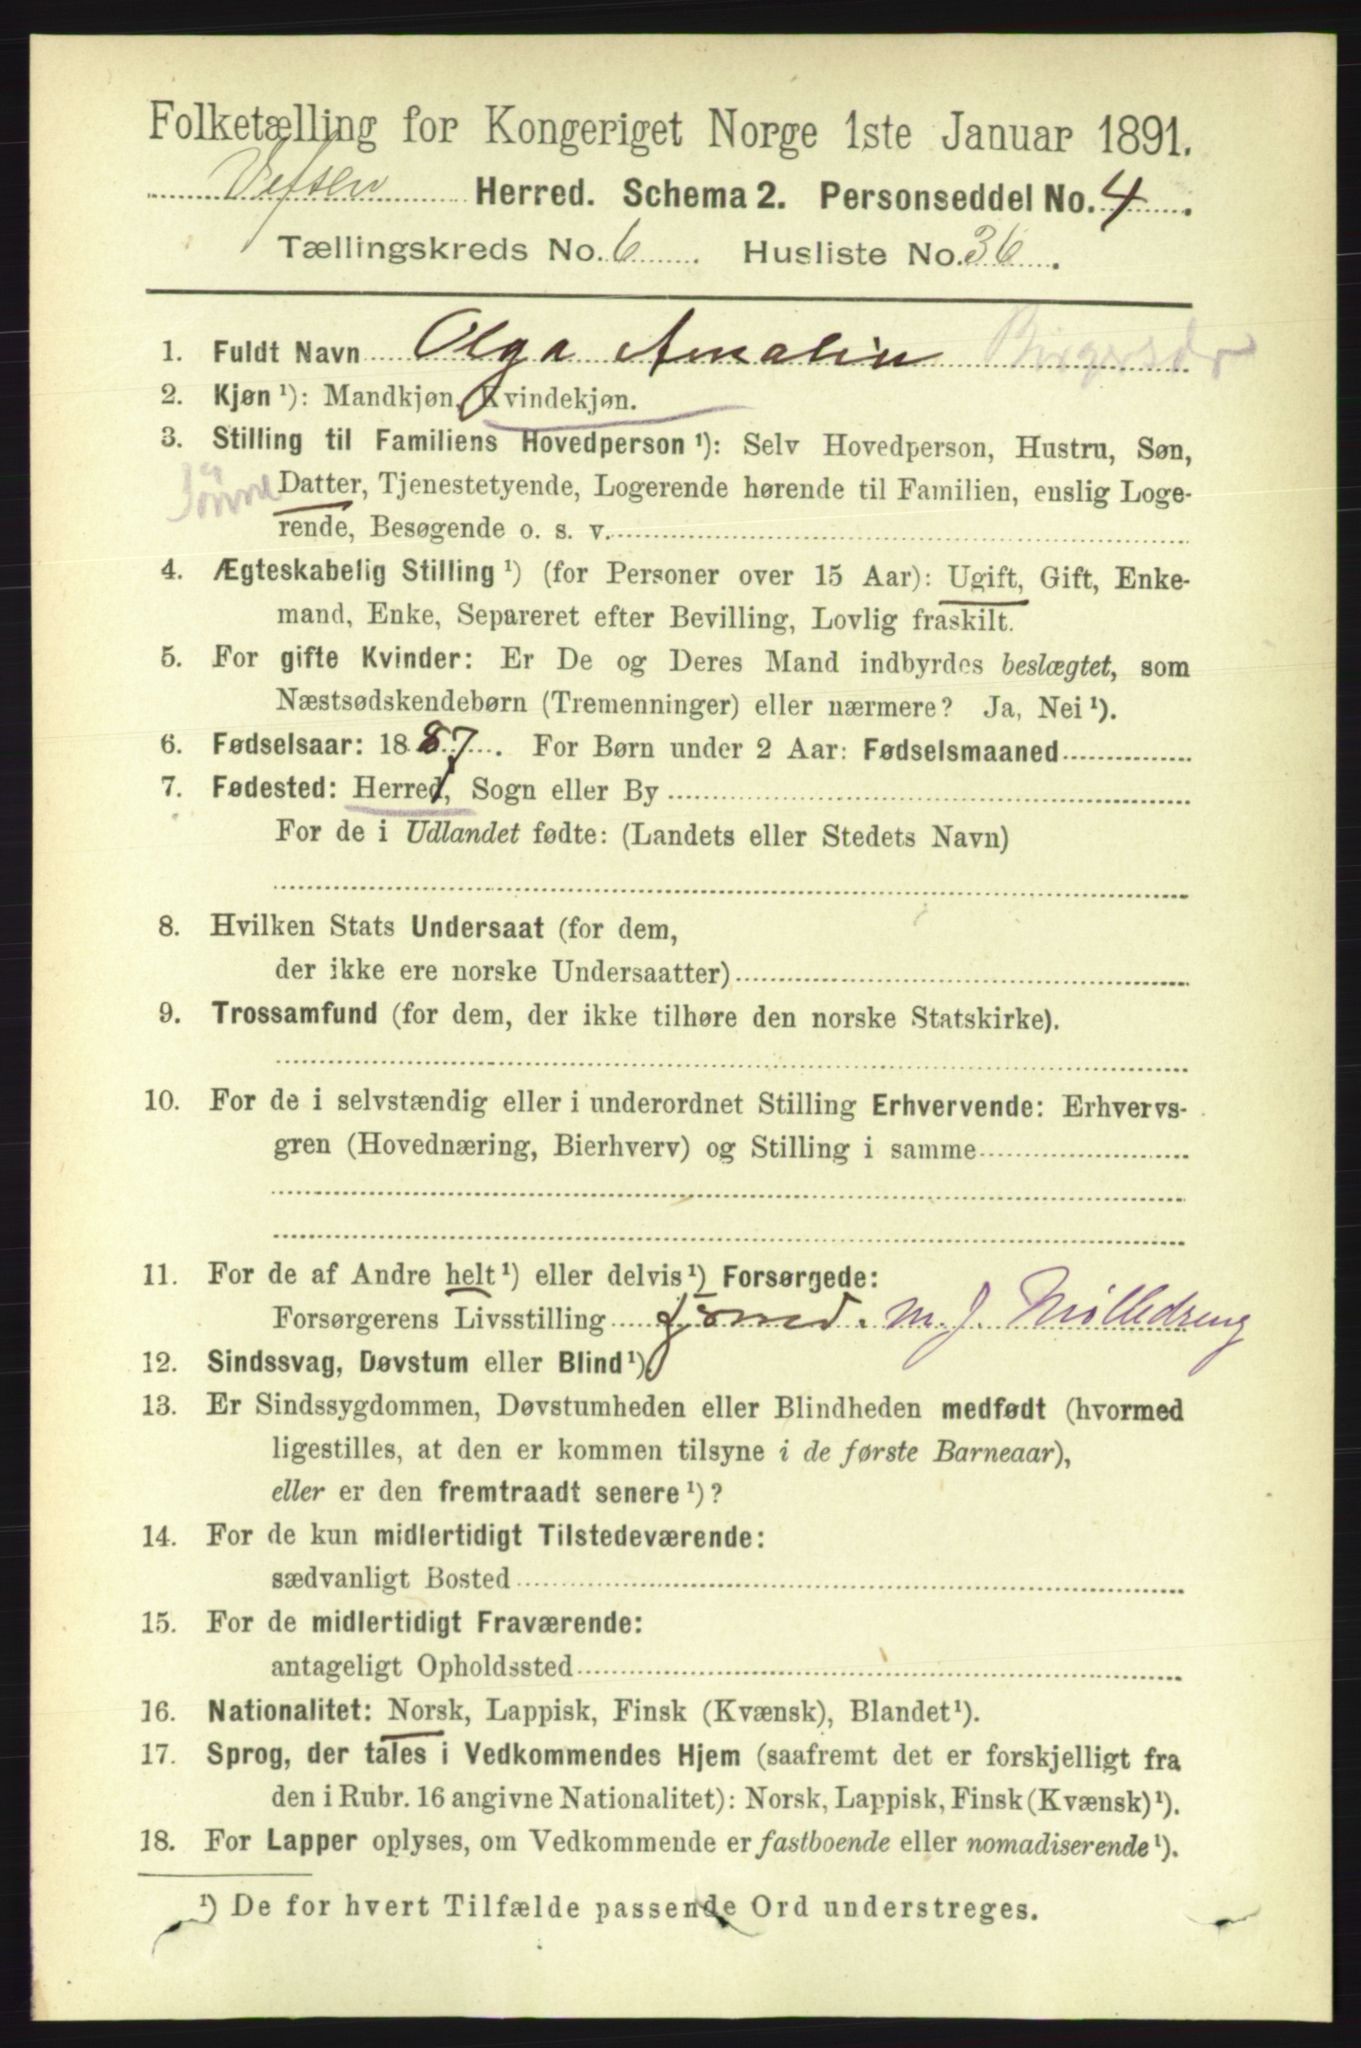 Folketælling for Kongeriget Norge 1ste Januar 1891.
Vefsen Herred. Schema 2. Personseddel No. 4.
Tællingskreds No. 6. Husliste No. 36.
1. Fuldt Navn Olga Amalie Birgersdr
2. Kjøn ¹): Mandkjøn, Kvindekjøn.
3. Stilling til Familiens Hovedperson ¹): Selv Hovedperson, Hustru, Søn,
Datter, Tjenestetyende, Logerende hørende til Familien, enslig Loge-
rende, Besøgende o. s. v.
4. Ægteskabelig Stilling ¹) (for Personer over 15 Aar): Ugift, Gift, Enke-
mand, Enke, Separeret efter Bevilling, Lovlig fraskilt.
5. For gifte Kvinder: Er De og Deres Mand indbyrdes beslægtet, som
Næstsødskendebørn (Tremenninger) eller nærmere? Ja, Nei ¹).
6. Fødselsaar: 1887. For Børn under 2 Aar: Fødselsmaaned
7. Fødested: Herred, Sogn eller By
For de i Udlandet fødte: (Landets eller Stedets Navn)
8. Hvilken Stats Undersaat (for dem,
der ikke ere norske Undersaatter)
9. Trossamfund (for dem, der ikke tilhøre den norske Statskirke).
10. For de i selvstændig eller i underordnet Stilling Erhvervende: Erhvervs-
gren (Hovednæring, Bierhverv) og Stilling i samme
11. For de af Andre helt ¹) eller delvis ¹) Forsørgede:
Forsørgerens Livsstilling m. J. Mølledreng
12. Sindssvag, Døvstum eller Blind ¹).
13. Er Sindssygdommen, Døvstumheden eller Blindheden medfødt (hvormed
ligestilles, at den er kommen tilsyne i de første Barneaar),
eller er den fremtraadt senere ¹)?
14. For de kun midlertidigt Tilstedeværende:
sædvanligt Bosted
15. For de midlertidigt Fraværende:
antageligt Opholdssted
16. Nationalitet: Norsk, Lappisk, Finsk (Kvænsk), Blandet ¹).
17. Sprog, der tales i Vedkommendes Hjem (saafremt det er forskjelligt fra
den i Rubr. 16 angivne Nationalitet): Norsk, Lappisk, Finsk (Kvænsk) ¹).
18. For Lapper oplyses, om Vedkommende er fastboende eller nomadiserende ¹).
¹) De for hvert Tilfælde passende Ord understreges.